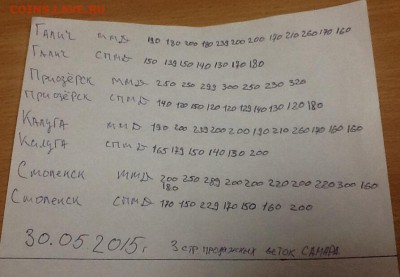 COINS.LOVE.RU
Галич ммд 190 180 200 190 239 200 200 170 210 260 170 160
Галич спмд 150 139 150 140 130 170 180
Приозёрск ммд 250 250 299 300 250 230 320
Приозёрск спмд 140 130 150 120 120 129 140 130 120 180
Калуга ммд 190 200 239 200 200 190 210 260 170 160 160
Калуга спмд 165 179 150 140 130 200
Смоленск ммд 200 250 289 200 200 220 200 220 300 160
180
Смоленск спмд 170 150 229 170 150 160 200
30.05.2015г 3 стр продажных веток САМАРА